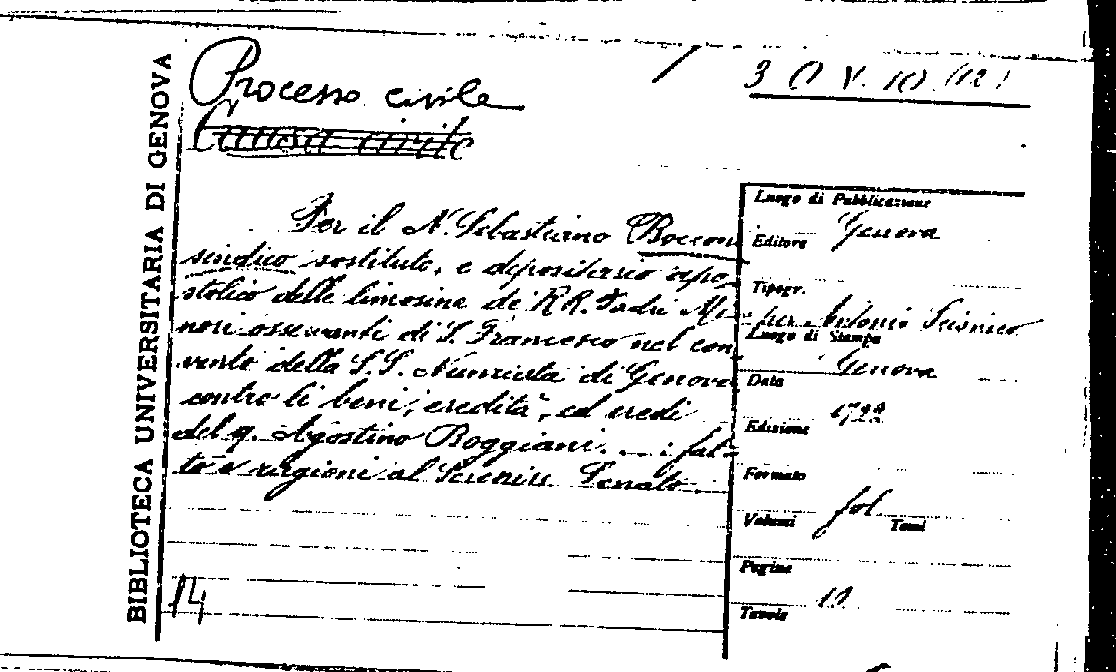 BIBLIOTECA UNIVERSITARIA DI GENOVA
3 O V. 10 (12)
Processo civile
Causa civile
Per il N. Sebastiano Boccon
sindico sostituto, e depositario apo-
stolico delle limosine de RR. Padri Mi-
nori osservanti di S. Francesco nel con-
vento della S.S. Nunziata di Genova
contro li beni, eredità, ed eredi
del q. Agostino Boggiani... : fat-
to e ragioni al Serenis. Senato.
14
Luogo di Pubblicazione
Genova
Editore
Tipogr.
per Antonio
Luogo di Stampa
Genova
Data
Edizione
Formato
fol
Volumi Tomi
Pagine
Tavole